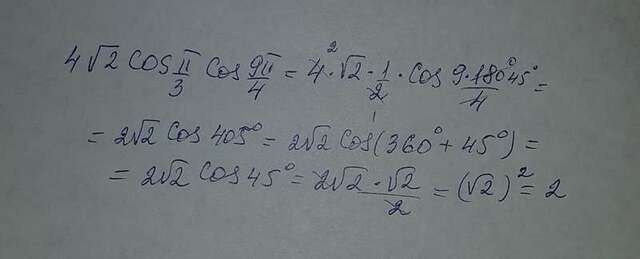 4√2 cos π/3 cos 9π/4 = 4² · √2 · 1/2 · cos 9·180°45°/4 =
1
= 2√2 cos 405° = 2√2 cos(360° + 45°) =
= 2√2 cos 45° = 2√2 · √2/2 = (√2)² = 2